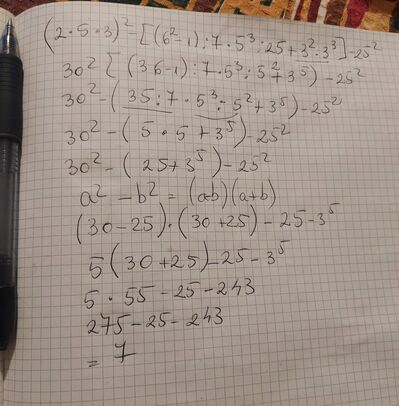 (2·5·3)² - [(6²-1):7·5³:25+3²·3³]-25²
30² [ (36-1):7·5³:5²+3⁵)-25²
30² - (35:7·5³:5²+3⁵)-25²
30² - ( 5·5+3⁵)-25²
30² - ( 25+3⁵)-25²
a² - b² = (a-b)(a+b)
(30-25)·(30+25) - 25-3⁵
5(30+25)-25-3⁵
5·55-25-243
275-25-243
= 7